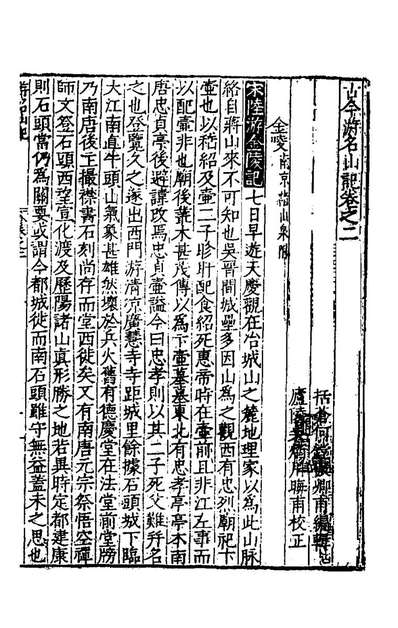 古今游名山記卷之二
括蒼何鏜振卿甫編輯
廬陵吳炳用晦甫校正
金陵
宋陸游金陵記 七日早遊天慶觀在冶城山之麓地理家以為此山脉
絡自蔣山來不可知也吳晉間城壘多因山為之觀西有忠烈廟祀卞
壼也以嵇紹及壼二子眕盱配食紹死惠帝時在壼前且非江左事而
以配壼非也廟後叢木甚茂傳以為卞壼墓墓東北有忠孝亭亭本南
唐忠貞亭後避諱改焉忠貞壼謚今曰忠孝則以其二子死父難并名
之也登覽久之遂出西門游清涼廣慧寺寺距城里餘據石頭城下臨
大江南直牛頭山氣象甚雄然壞於兵火舊有德慶堂在法堂前堂牓
乃南唐後主撮襟書石刻尚存而堂西徙矣又有南唐元宗祭悟空禪
師文登石頭西望宣化渡及歷陽諸山真形勝之地若異時定都建康
則石頭當仍為關要或謂今都城徙而南石頭雖守無益蓋未之思也